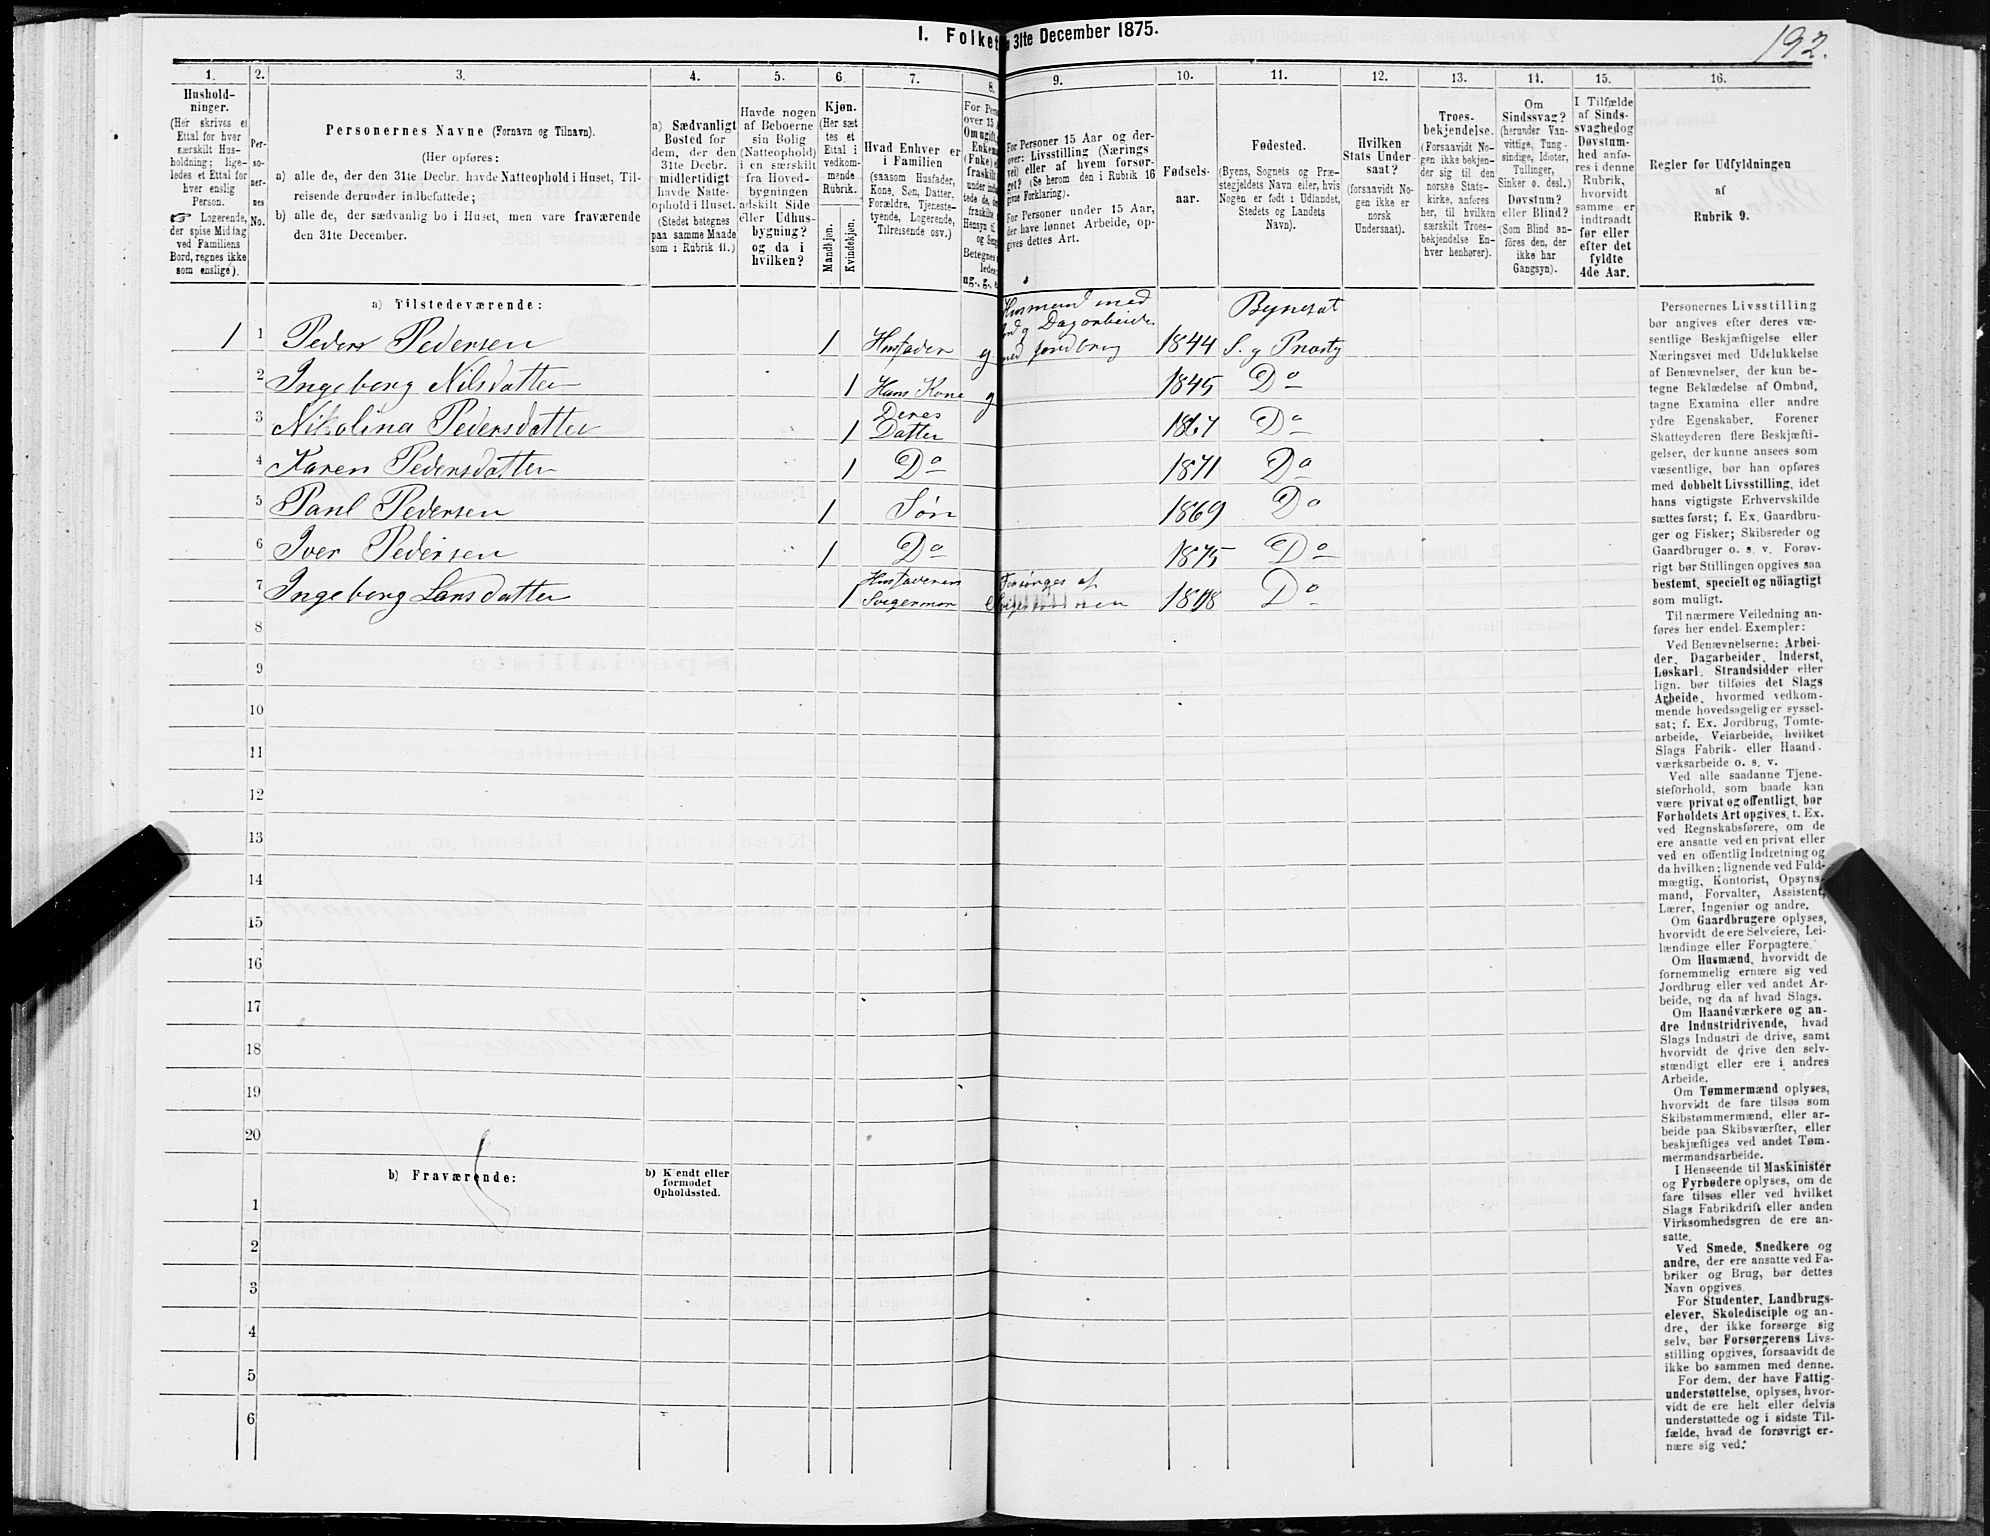 I. Folket
31te December 1875.
192.
1. 2. 3. 4. 5. 6. 7. 8. 9. 10. 11. 12. 13. 14. 15. 16.
Hushold-
ninger.
(Her skrives et
Ettal for hver
særskilt Hus-
holdning; lige-
ledes et Ettal for
hver enslig
Person.
☞ Logerende,
der spise Middag
ved Familiens
Bord, regnes ikke
som enslige).
Per-
so-
ner-
nes
No.
Personernes Navne (Fornavn og Tilnavn).
(Her opføres:
a) alle de, der den 31te Decbr. havde Natteophold i Huset, Til-
reisende derunder indbefattede;
b) alle de, der sædvanlig bo i Huset, men vare fraværende
den 31te December.
a) Sædvanligt
Bosted for
dem, der den
31te Decbr.
midlertidigt
havde Natte-
ophold i Huset.
(Stedet betegnes
paa samme Maade
som i Rubrik 11.)
Havde nogen
af Beboerne
sin Bolig
(Natteophold)
i en særskilt
fra Hoved-
bygningen
adskilt Side
eller Udhus-
bygning?
og da i
hvilken?
Kjøn.
(Her sæt
tes et
Ettal i
vedkom-
mende
Rubrik.
Mandkjøn.
Kvindekjøn.
Hvad Enhver er
i Familien
(saasom Husfader,
Kone, Søn, Datter,
Forældre, Tjeneste-
tyende, Logerende,
Tilreisende osv.)
For Personer 15 Aar og der-
over: Livsstilling (Nærings
vei) eller af hvem forsør-
get? (Se herom den i Rubrik 16
givne Forklaring).
For Personer under 15 Aar,
der have lønnet Arbeide, op-
gives dettes Art.
Fødsels-
aar.
Fødested.
(Byens, Sognets og Præ-
stegjeldets Navn eller, hvis
Nogen er født i Udlandet,
Stedets og Landets
Navn).
Hvilken
Stats Under-
saat?
(forsaavidt No-
gen ikke er
norsk
Undersaat).
Troes-
bekjendelse.
(Forsaavidt No-
gen ikke bekjen-
der sig til den
norske Stats-
kirke, anføres
her, til hvilken
særskilt Troes-
bekjendelse En-
hver henhører).
Om
Sindssvag?
(herunder Van-
vittige, Tung-
sindige, Idioter,
Tullinger,
Sinker o. desl.)
Døvstum?
eller Blind?
(Som Blind an-
føres den, der
ikke har
Gangsyn).
I Tilfælde
af Sinds-
svaghed og
Døvstum-
hed anfø-
res i denne
Rubrik,
hvorvidt
samme er
indtraadt
før eller
efter det
fyldte
4de Aar.
Regler for Udfyldningen
af
Rubrik 9.
a) Tilstedeværende:
1 1 Peder Pedersen 1 Husfader g Husmand med Jord og Dagarbeider med Jordbrug 1844 Bynesset S. og Præstg
2 Ingeborg Nilsdatter 1 Hans Kone g 1845 Do
3 Nikolina Pedersdatter 1 Deres Datter 1867 Do
4 Karen Pedersdatter 1 Do 1871 Do
5 Paul Pedersen 1 Søn 1869 Do
6 Iver Pedersen 1 Do 1875 Do
7 Ingeborg Larsdatter 1 Husfaderens Svigermor Forsørges af Svigersønnen 1808 Do
8
9
10
11
12
13
14
15
16
17
18
19
20
b) Fraværende:
b) Kjendt eller
formodet
Opholdssted.
1
2
3
4
5
6
Personernes Livsstilling
bør angives efter deres væ-
sentlige Beskjæftigelse eller
Næringsvei med Udelukkelse
af Benævnelser, der kun be-
tegne Beklædelse af Ombud,
tagne Examina eller andre
ydre Egenskaber. Forener
Skatteyderen flere Beskjæfti-
gelser, der kunne ansees som
væsentlige, bør han opføres
med dobbelt Livsstilling, idet
hans vigtigste Erhvervskilde
sættes først; f. Ex. Gaardbru-
ger og Fisker; Skibsreder og
Gaardbruger o. s. v. Forøv-
rigt bør Stillingen opgives saa
bestemt, specielt og nøiagtigt
som muligt.
Til nærmere Veiledning an-
føres her endel Exempler:
Ved Benævnelserne: Arbei-
der, Dagarbeider, Inderst,
Løskarl, Strandsidder eller
lign. bør tilføies det Slags
Arbeide, hvormed vedkom-
mende hovedsagelig er syssel-
sat; f. Ex. Jordbrug, Tomte-
arbeide, Veiarbeide, hvilket
Slags Fabrik- eller Haand-
værksarbeide o. s. v.
Ved alle saadanne Tjene-
steforhold, som baade kan
være privat og offentligt, bør
Forholdets Art opgives, t. Ex.
ved Regnskabsførere, om de
ere ansatte ved en privat eller
ved en offentlig Indretning og
da hvilken; lignende ved Fuld-
mægtig, Kontorist, Opsyns-
mand, Forvalter, Assistent,
Lærer, Ingeniør og andre.
Om Gaardbrugere oplyses,
hvorvidt de ere Selveiere, Lei-
lændinge eller Forpagtere.
Om Husmænd, hvorvidt de
fornemmelig ernære sig ved
Jordbrug eller ved andet Ar-
beide, og da af hvad Slags.
Om Haandværkere og an-
dre Industridrivende, hvad
Slags Industri de drive, samt
hvorvidt de drive den selv-
stændigt eller ere i andres
Arbeide.
Om Tømmermænd oplyses,
hvorvidt de fare tilsøs som
Skibstømmermænd, eller ar-
beide paa Skibsværfter, eller
beskjæftiges ved andet Tøm-
mermandsarbeide.
I Henseende til Maskinister
og Fyrbødere oplyses, om de
fare tilsøs eller ved hvilket
Slags Fabrikdrift eller anden
Virksomhedsgren de ere an-
satte.
Ved Smede, Snedkere og
andre, der ere ansatte ved Fa-
briker og Brug, bør dettes
Navn opgives.
For Studenter, Landbrugs-
elever, Skoledisciple og an-
dre, der ikke forsørge sig
selv, bør Forsørgerens Livs-
stilling opgives, forsaavidt de
ikke bo sammen med denne.
For dem, der have Fattig-
understøttelse, oplyses, hvor-
vidt de ere helt eller delvis
understøttede og i sidste Til-
fælde, hvad de forøvrigt er-
nære sig ved.